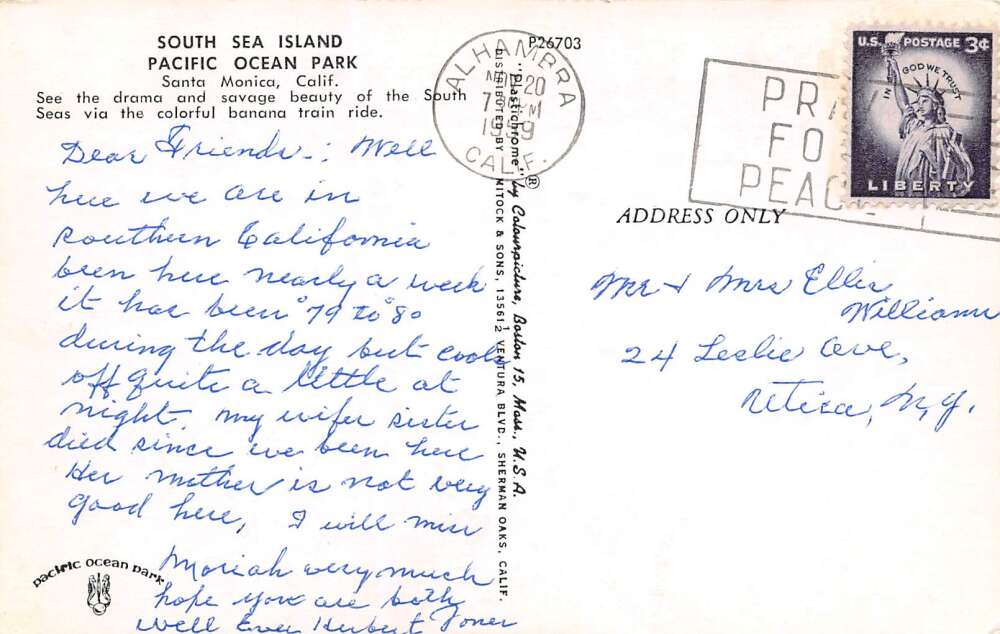 SOUTH SEA ISLAND
PACIFIC OCEAN PARK
Santa Monica, Calif.
See the drama and savage beauty of the South
Seas via the colorful banana train ride.
Dear Friends: Well
here we are in
southern California
been here nearly a week
it has been °79 to °80
during the day but cools
off quite a little at
night. my wifes sister
died since we been here
Her mother is not very
good here, I will miss
Moriah very much
hope you are both
well Ever Herbert Joner
pacific ocean park
P26703
DISTRIBUTED BY MITOCK & SONS, 13561½ VENTURA BLVD., SHERMAN OAKS, CALIF.
"Plastichrome"® by Colourpicture, Boston 15, Mass., U.S.A.
ALHAMBRA
20
1959
CALIF.
PRAY
FOR
PEACE
U.S. POSTAGE 3¢
IN GOD WE TRUST
LIBERTY
ADDRESS ONLY
Mr + Mrs Ellis
Williams
24 Leslie Ave,
Utica, N.Y.